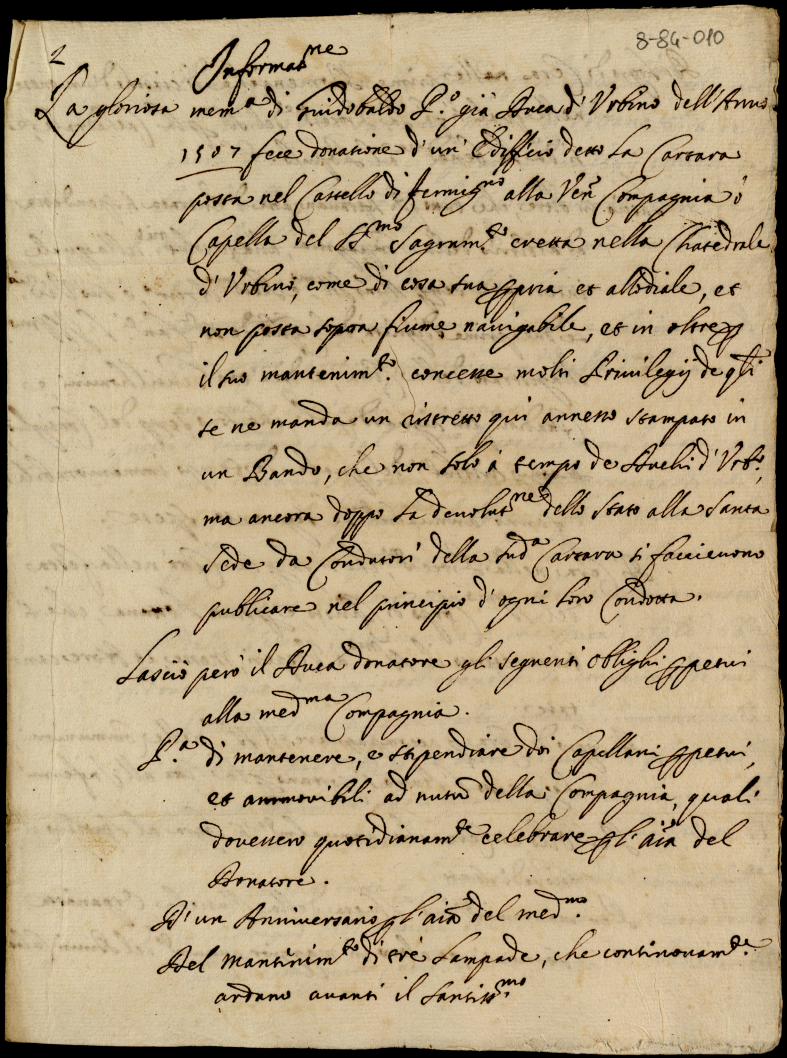 8-84-010
2
Informat.ne
La gloriosa mem.a di Guidobaldo P.o già Duca d'Urbino dell'Anno
1507 fece donatione d'un' Edifficio detto la Cartara
posta nel Castello di Fermig.no alla Ven. Compagnia ò
Capella del SS.mo Sagram.to eretta nella Chatedrale
d'Urbino, come di cosa sua ppria et allodiale, et
non posta sopra fiume navigabile, et in oltre p
il suo mantenim.to concesse molti Privilegij de qli
se ne manda un ristretto qui annesso stampato in
un Bando, che non solo à tempo de Duchi d'Urb.o,
ma ancora doppo la devolut.ne dello Stato alla Santa
Sede da Condutori della sud.a Cartara si facievono
publicare nel principio d'ogni loro Condotta.
Lasciò però il Duca donatore gli seguenti oblighi ppetui
alla med.ma Compagnia.
P.a di mantenere, e stipendiare doi Capellani ppetui,
et ammovibili ad nutū della Compagnia, quali
dovessero quotidianam.te celebrare p l'aīa del
Donatore.
D'un Anniversario p l'aīa del med.mo
Del mantinim.to di trè Lampade, che continovam.te
ardano avanti il Santiss.mo